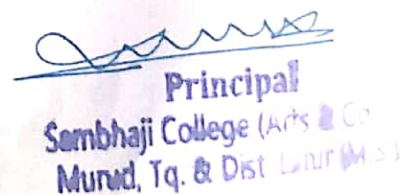 Principal
Sambhaji College (Arts & Co
Murud, Tq. & Dist. Latur (M.S.)